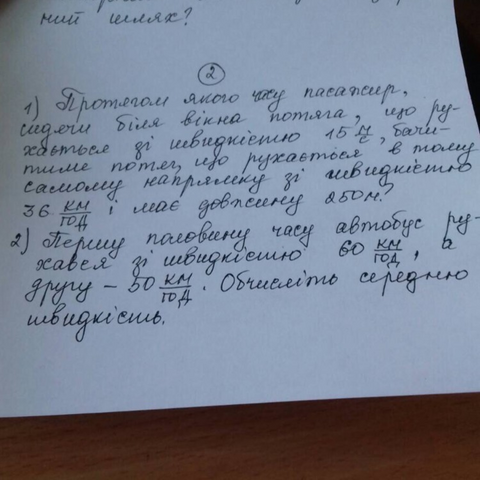 ний шлях?
2
1) Протягом якого часу пасажир,
сидячи біля вікна потяга, що ру-
хається зі швидкістю 15 м/с, бачи-
тиме потяг, що рухається в тому
самому напрямку зі швидкістю
36 км/год і має довжину 250 м?
2) Першу половину часу автобус ру-
хався зі швидкістю 60 км/год, а
другу – 50 км/год. Обчисліть середню
швидкість.